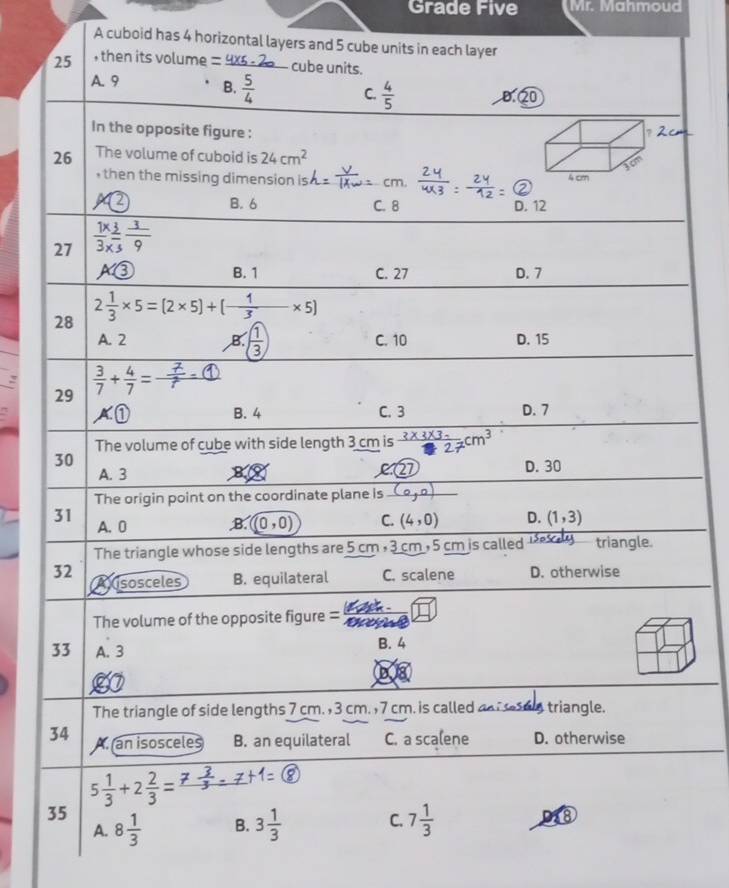 Grade Five Mr. Mahmoud
A cuboid has 4 horizontal layers and 5 cube units in each layer
25 , then its volume = 4x5 = 20 cube units.
A. 9 B. 5/4 C. 4/5 D. 20
In the opposite figure :
? 2 cm
26 The volume of cuboid is 24 cm²
3 cm
4 cm
, then the missing dimension is h = V/lxw = cm. 24/4x3 = 24/12 = 2
A. 2 B. 6 C. 8 D. 12
27 1x3/3x3 = 3/9
A. 3 B. 1 C. 27 D. 7
28 2 1/3 × 5 = (2 × 5) + ( 1/3 × 5)
A. 2 B. 1/3 C. 10 D. 15
29 3/7 + 4/7 = 7/7 = 1
A. 1 B. 4 C. 3 D. 7
30 The volume of cube with side length 3 cm is 3x3x3 = 27 cm³
A. 3 B. 9 C. 27 D. 30
31 The origin point on the coordinate plane is (0,0)
A. 0 B. (0 , 0) C. (4 , 0) D. (1 , 3)
32 The triangle whose side lengths are 5 cm , 3 cm , 5 cm is called isosceles triangle.
A. isosceles B. equilateral C. scalene D. otherwise
33 The volume of the opposite figure =
A. 3 B. 4
C. 7 D. 8
34 The triangle of side lengths 7 cm. , 3 cm. , 7 cm. is called an isosceles triangle.
A. an isosceles B. an equilateral C. a scalene D. otherwise
35 5 1/3 + 2 2/3 = 7 3/3 = 7+1 = 8
A. 8 1/3 B. 3 1/3 C. 7 1/3 D. 8